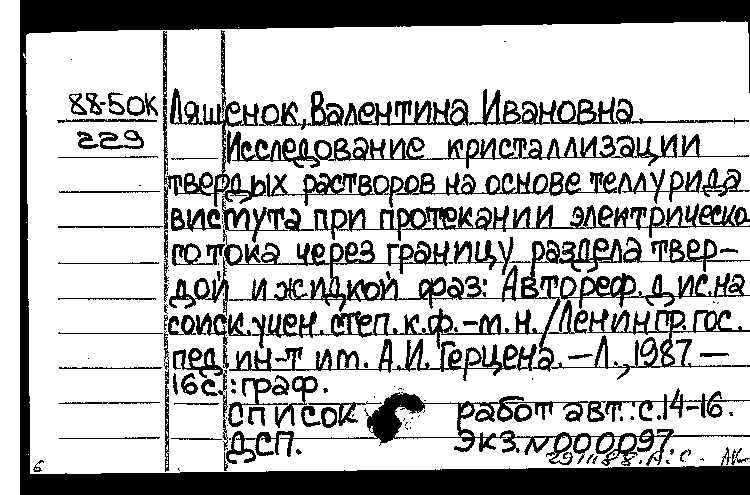 88-50К Ляшенок, Валентина Ивановна.
229 Исследование кристаллизации
твердых растворов на основе теллурида
висмута при протекании электрическо
го тока через границу раздела твер-
дой и жидкой фаз: Автореф. дис. на
соиск. учен. степ. к. ф.-м. н. / Ленингр. гос.
пед. ин-т им. А.И. Герцена. — Л., 1987. —
16 с.: граф.
Список работ авт.: с. 14-16.
ДСП. Экз. N 000097
6